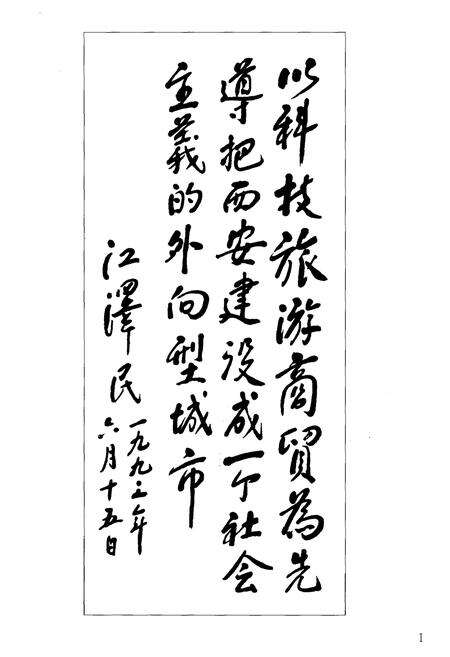 以科技旅游商貿為先
導把西安建設成一个社会
主義的外向型城市
江澤民
一九九三年
六月十五日
1